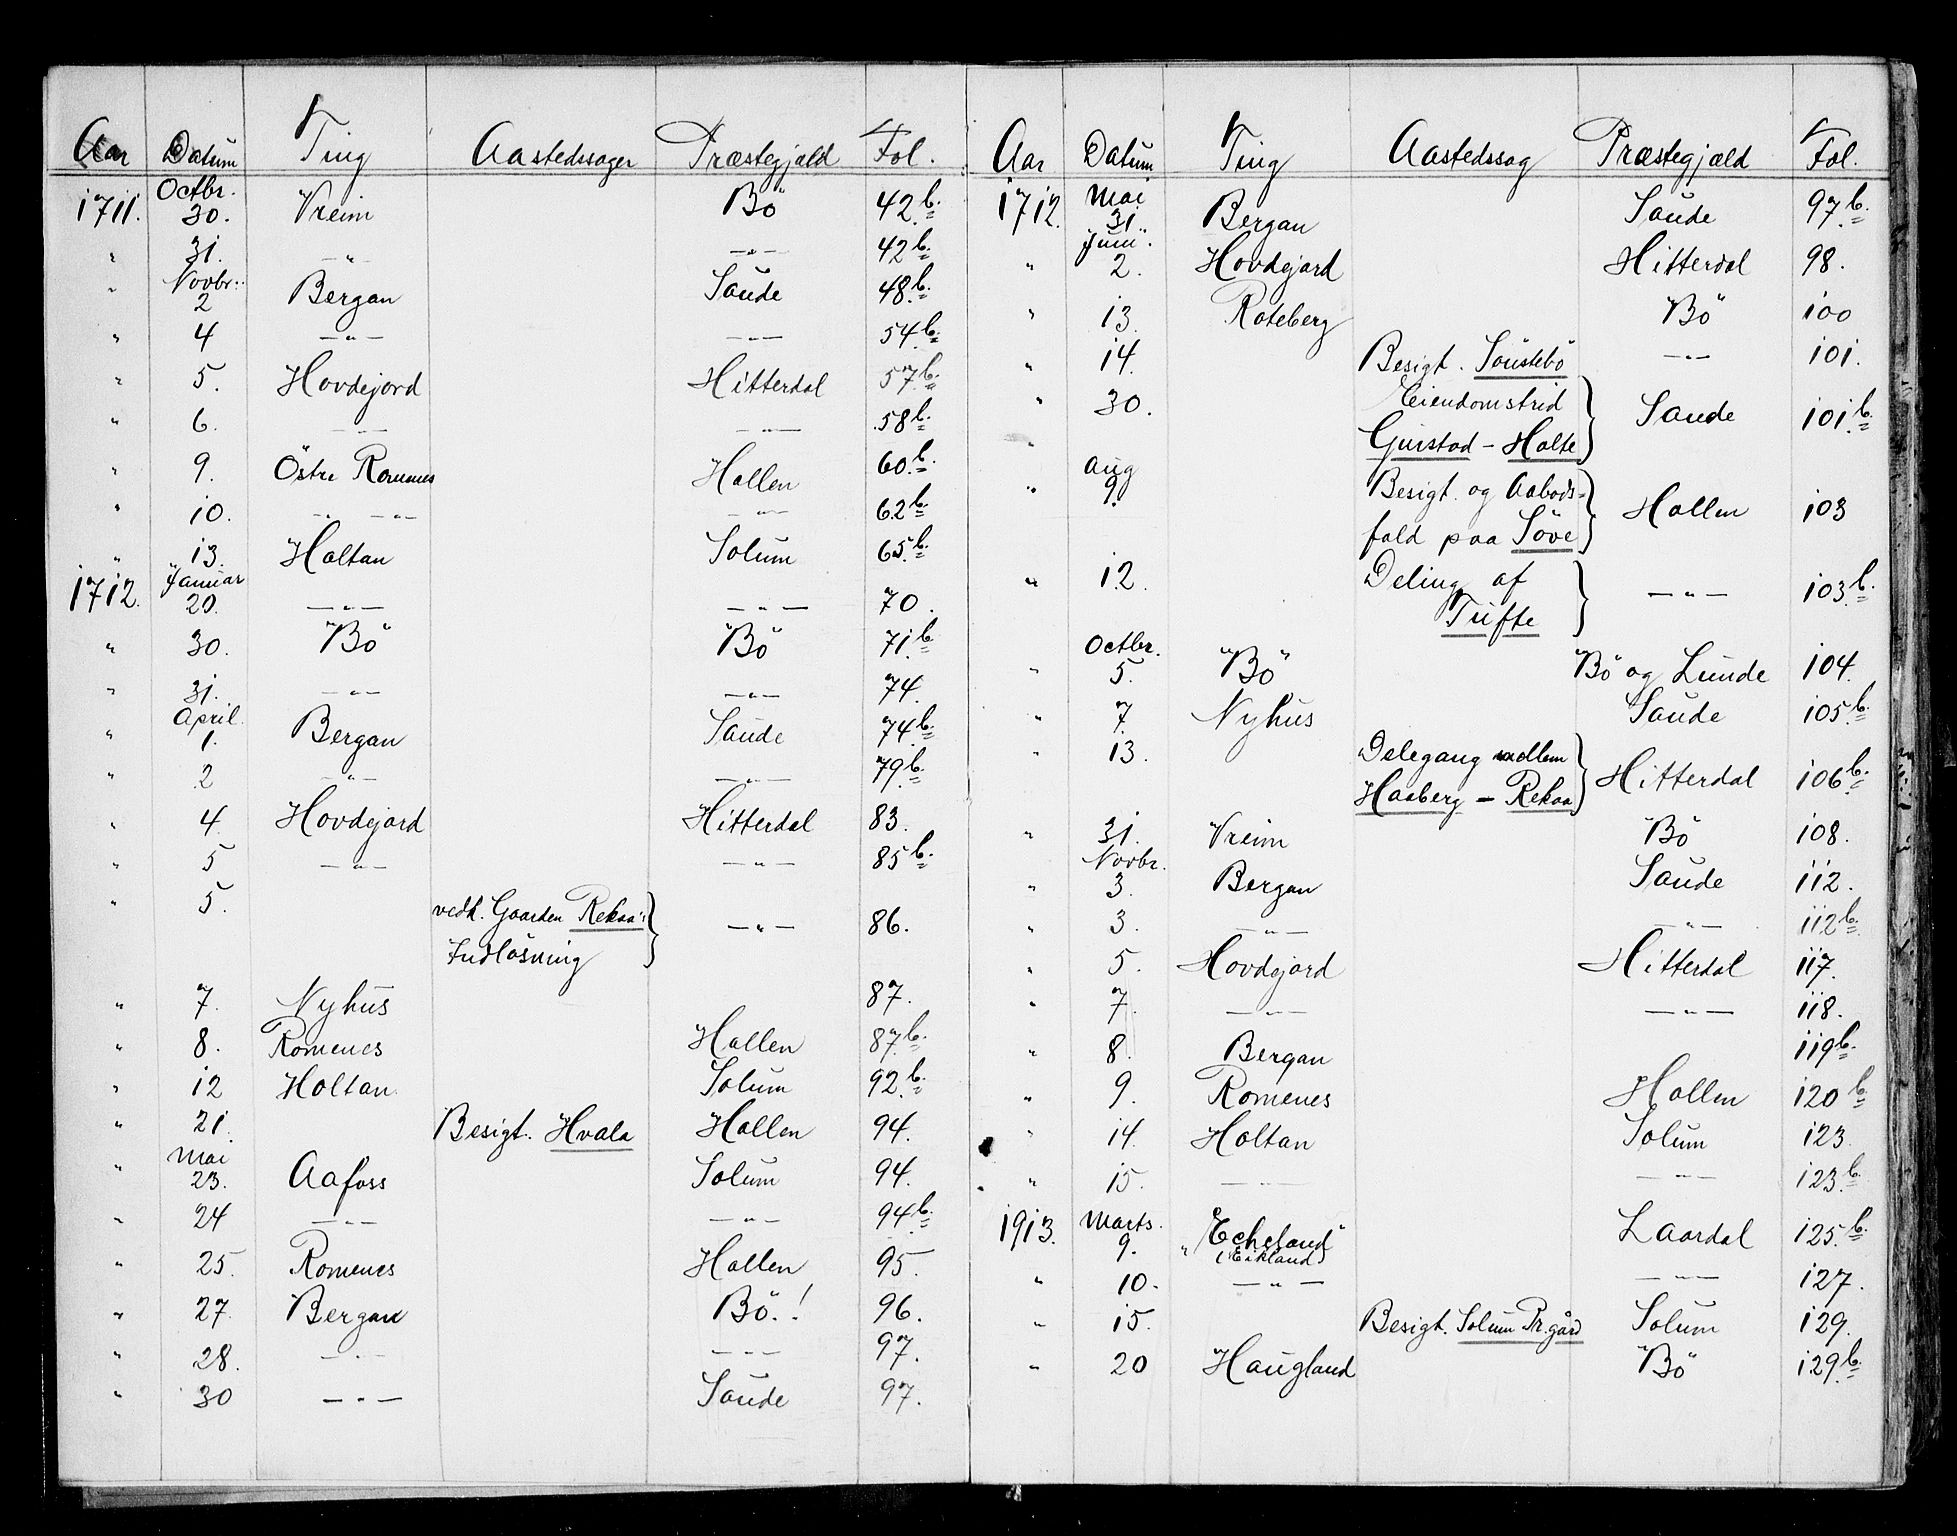 Aar Datum Ting Aastedssager Præstegjæld Fol.
1711. Octbr. 30. Vreim Bö 42 b.
" 31. —"— —"— 42 b.
" Novbr. 2 Bergan Saude 48 b.
" 4 —"— —"— 54 b.
" 5. Hovdejord Hitterdal 57 b.
" 6. —"— —"— 58 b.
" 9. Östre Romenes Hollen 60 b.
" 10. —"— —"— 62 b.
" 13. Holtan Solum 65 b.
1712. Januar 20. —"— —"— 70.
" 30. Bö Bö 71 b.
" 31. —"— —"— 74.
" April 1. Bergan Saude 74 b.
" 2 —"— —"— 79 b.
" 4 Hovdejord Hitterdal 83.
" 5 —"— —"— 85 b.
" 5. vedk. Gaarden Rekaa's
Indlösning } —"— 86.
" 7. Nyhus 87.
" 8. Romenes Hollen 87 b.
" 12 Holtan Solum 92 b.
" 21. Besigt. Hvala Hollen 94.
" Mai 23. Aafoss Solum 94.
" 24 —"— —"— 94 b.
" 25. Romenes Hollen 95.
" 27. Bergan Bö.! 96.
" 28. —"— —"— 97.
" 30 —"— Saude 97.
Aar Datum Ting Aastedssag Præstegjæld Fol.
1712. Mai 31 Bergan Saude 97 b.
" Juni 2. Hovdejord Hitterdal 98.
" 13. Roteberg Bö 100
" 14. Besigt. Soustebö —"— 101.
" 30. Eiendomstrid
" Gurstad - Holte } Saude 101 b.
" Aug 9. Besigt. og Aabods-
fald paa Söve } Hollen 103
" 12. Deling af
Tufte } —"— 103 b.
" Octbr. 5. Bö Bö og Lunde 104.
" 7. Nyhus Saude 105 b.
" 13. Delegang mellem
Haaberg - Rekaa } Hitterdal 106 b.
" 31. Vreim Bö 108.
" Novbr. 3. Bergan Saude 112.
" 3. —"— —"— 112 b.
" 5. Hovdejord Hitterdal 117.
" 7. —"— —"— 118.
" 8. Bergan 119 b.
" 9. Romenes Hollen 120 b
" 14. Holtan Solum 123.
" 15. —"— —"— 123 b.
1913. Marts. 9. "Echeland"
(Eikland) Laardal 125 b.
" 10. —"— —"— 127.
" 15. Besigt. Solum Pr.gård Solum 129.
" 20 Haugland Bö 129 b.